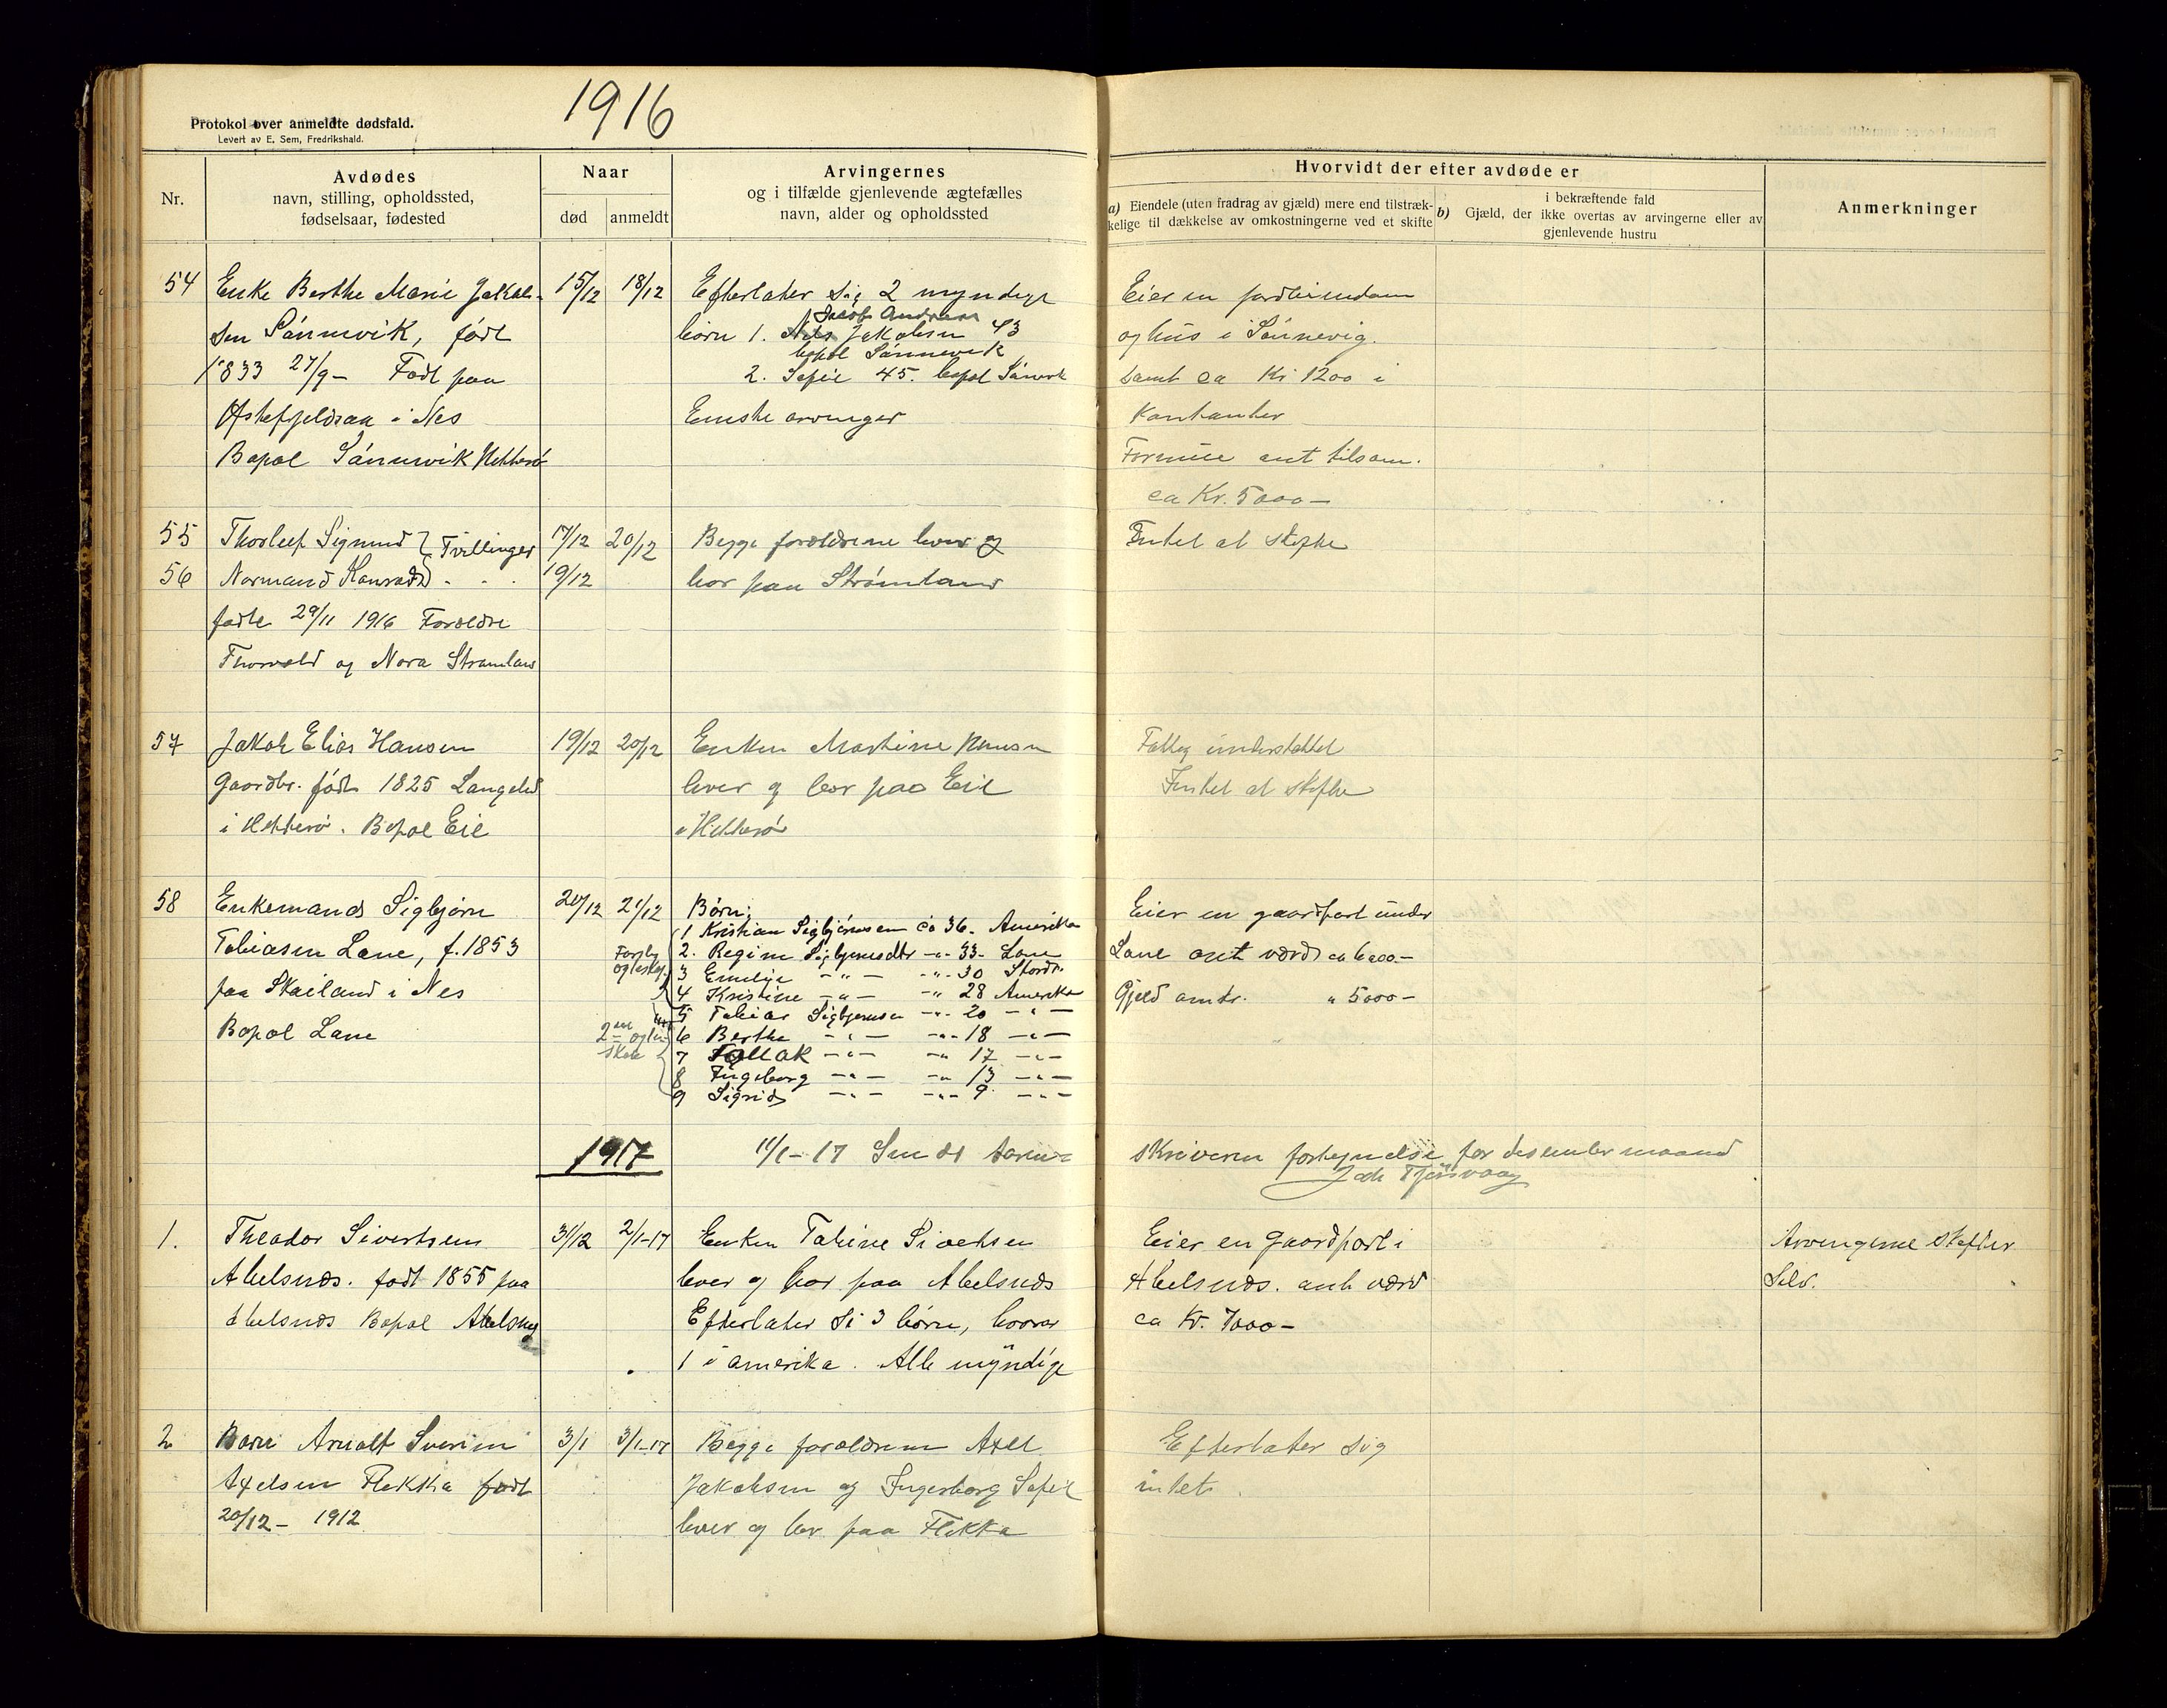 1916
Protokol over anmeldte dødsfald.
Levert av E. Sem, Fredrikshald.
Nr.
Avdødes
navn, stilling, opholdssted,
fødselsaar, fødested
Naar
død
anmeldt
Arvingernes
og i tilfælde gjenlevende ægtefælles
navn, alder og opholdssted
Hvorvidt der efter avdøde er
a) Eiendele (uten fradrag av gjæld) mere end tilstræk-
kelige til dækkelse av omkostningerne ved et skifte
b) Gjæld, der
i bekræftende fald
ikke overtas av arvingerne eller av
gjenlevende hustru
Anmerkninger
54
Enke Berthe Marie Jakob-
sen Sónnevik, født
1833 27/9 - Født paa
i Nes
Bopæl Sónnevik
15/12
18/12
Efterlater sig 2 myndige
Jacob Andreas
børn 1. Nils Jakobsen 43
bopæl Sønnevik
2. Sofie 45. bopæl
Eneste arvinger
Eier en jordeiendom
og hus i Sónnevig.
samt ca Kr 1200 i
Kontanter
Formue ant tilsam.
ca Kr. 5000 -
55
Thorleif Sigmund } Tvillinger
17/12
20/12
Begge forældrene lever og
Intet at skifte
56
Normand Konrad
19/12
bor paa Strømland
fødte 29/11 1916 Forældre
Thorvald og Nora Strømland
57
Jakob Elias Hansen
Gaardbr. født 1825
i Hitterø. Bopæl Eie
19/12
20/12
Enken Martine Hansen
lever og bor paa Eie
i Hitterø
Fattig understøttet
Intet at skifte
58
Enkemand Sigbjørn
Tobiasen Lane, f. 1853
paa Skailand i Nes
Bopæl Lane
20/12
21/12
Børn:
1 Kristian Sigbjørnsen ca 36. Amerika
2. Regine Sigbjørnsdtr -"- 33 - Lane
3 Emilie -"- -"- 30
4 Kristine -"- -"- 28 Amerika
5 Tobias Sigbjørnsen -"- 20 -"-
6 Berthe -"- -"- 18 -"-
7 Tollak -"- -"- 17 -"-
8 Ingeborg -"- -"- 13 -"-
9 Sigrid -"- -"- 9 -"-
Eier en gaardpart under
Lane ant værd ca 6000 -
Gjeld " 5000 -
1917
11/1 - 17 Sendt Soren-
skriveren fortegnelse for desember maaned
1.
Theodor Sivertsen
Abelsnæs. født 1855 paa
Abelsnæs Bopæl Abelsnes
31/12
2/1-17
Enken Tobine Sivertsen
lever og bor paa Abelsnæs
Efterlater si 3 børn, hvorav
1 i amerika. Alle myndige
Eier en gaardpart i
Abelsnæs. ant værd
ca Kr. 7000 -
Arvingerne skifter
Selv.
2
Barn Arnolf Severin
Axelsen Flikka født
20/12 - 1912
3/1
3/1-17
Begge forældrene Axel
Jakobsen og Ingeborg Sofie
lever og bor paa Flikka
Efterlater sig
intet.